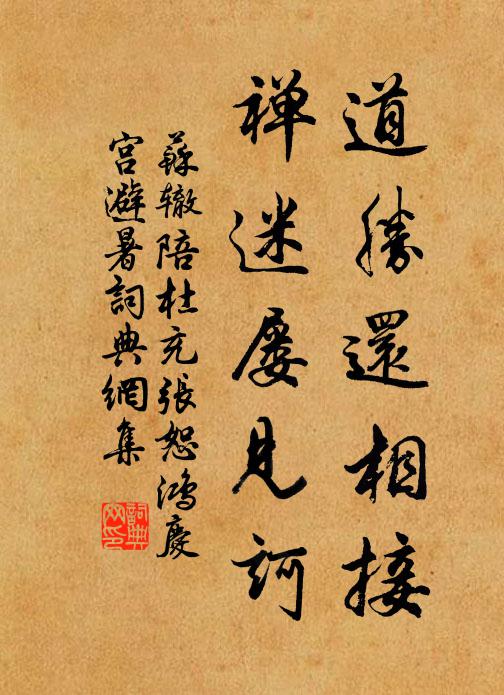 道勝還相接
禅迷屡見訶
蘇辙陪杜充張恕鴻慶
宫避暑詞典網集
詞典
网印